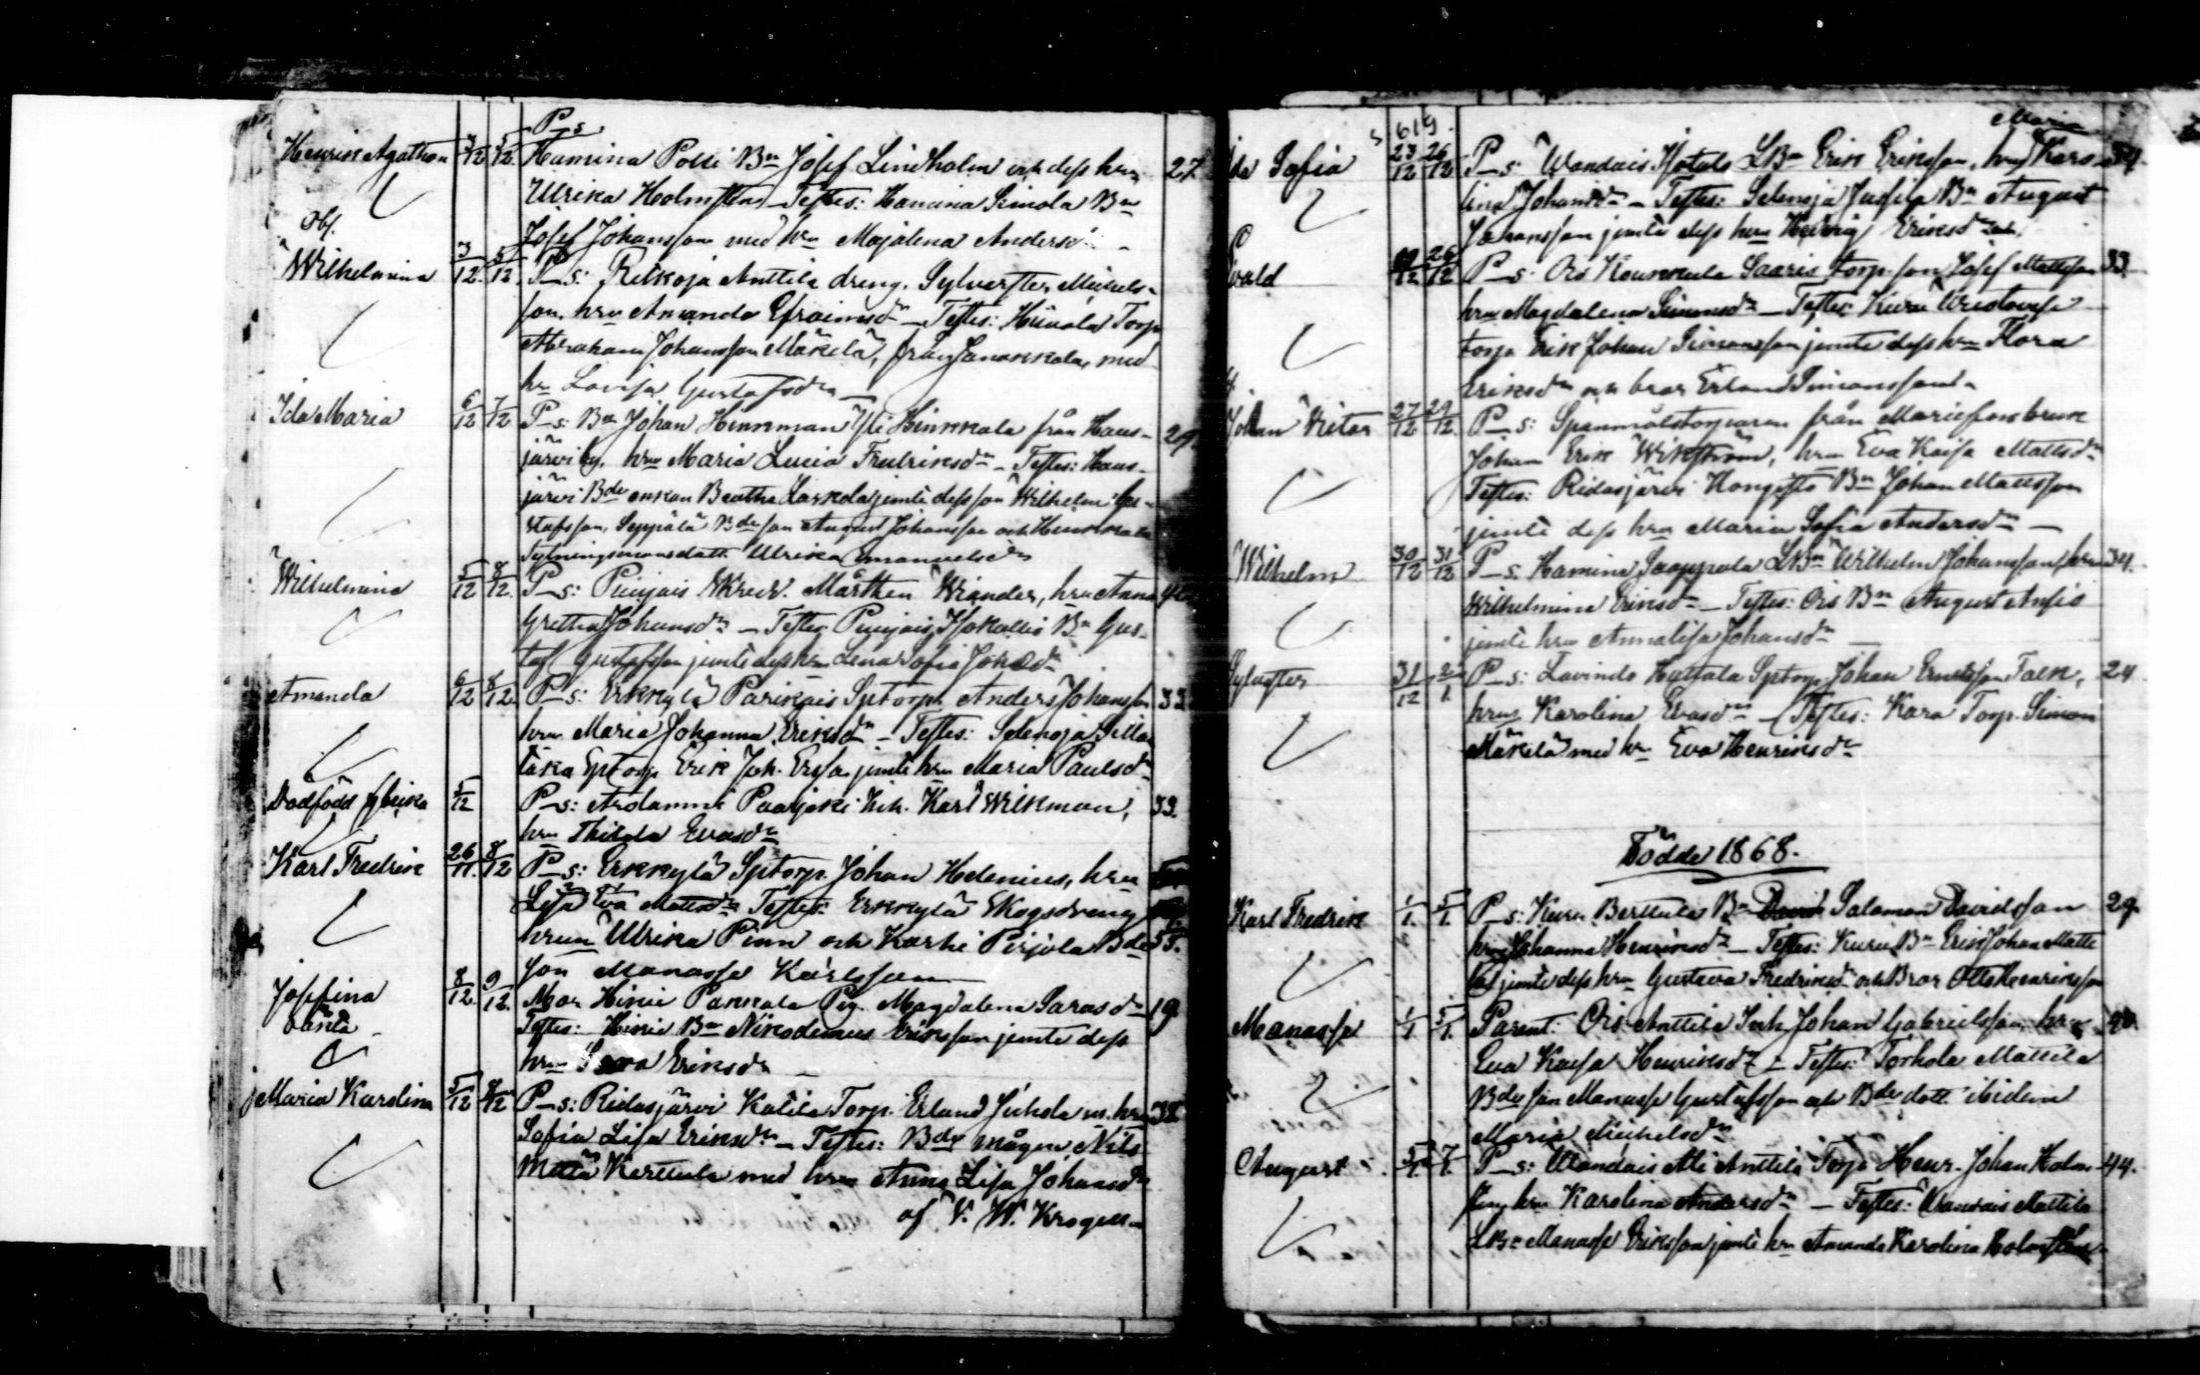 P_s
Henrik Agathon 3/12 5/12 Hamina Polli Bn Josef Lindholm och dess hru 27.
Ulrika Holmsten – Testes: Hamina Simola Bn
Josef Johansson med hru Majalena Andersd.
Obs.
Wilhelmina 3/12 5/12 P_s: Retkoja Anttila dreng. Sylvester Michels-
son, hru Amanda Efraimsdr – Testes: Torp
Abraham Johansson Mäkelä, från Janakkala, med
hr Lovisa Gustafsdr –
Ida Maria 6/12 7/12 P_s: Bn Johan Henrman Yli Hinkkala från Haus- 29.
järvi by, hru Maria Lucia Fredriksdr – Testes: Haus-
järvi Bde enkan Beatha jemte dess son Wilhelm Gu-
stafsson, Seppälä Bde son August Johansson och
Ulrika Emanuelsdr
Wilhelmina 5/12 8/12 P_s: Puujais Skredd. Mårthen Wiander, hru Anna
Gretha Johansdr – Testes Puujais Isokallio Bn Gus-
taf Gustafsson jemte dess hru Lena Sofia Johsdr
Amanda 6/12 8/12 P_s: Erkkylä Parikais Sptorp. Anders Johansson 33.
hru Maria Johanna Eriksdr – Testes: Selenoja Silla-
taka Sptorp Erik Joh. Ersson jemte hru Maria Paulsdr
Dödfödd flicka 5/12 P_s: Arolammi Paarjoki Inh. Karl Wikman, 33.
hru Thilda Evasdr
Karl Fredrik 26/11. 8/12 P_s: Erkkylä Sptorp. Johan Helenius, hru
Lisa Eva Mattsdr Testes: Erkkylä Skogsdreng
hrun Ulrika Pinn och Karhi Pirjola Bde
son Manasse Karlsson
Josefina 8/12. 9/12. Mor Hikiä Pakkala Pig. Magdalena Sarasdr 19.
oäkta Testes: Hikiä Bn Nikodemus Eriksson jemte dess
hru Sara Eriksdr –
Maria Karolina 5/12 8/12 P_s: Ridasjärvi Katila Torp. Erland Juhola m. hru
Sofia Lisa Eriksdr – Testes: Bde mågen Nils
Kerttula med hru Anna Lisa Johansdr
af V. W. Krogell
619.
Maria
Ida Sofia 23/12 26/12 P_s: Wandais Isotalo LBn Erik Eriksson, hru Karo-
lina Johansdr – Testes: Selenoja Jussila Bn August
Johansson jemte dess hru Hedvig Eriksdr
Evald 26/12 P_s: Ois Kounkula Saaris torp. son Josef Mattsson 33.
hru Magdalena Simonsdr – Testes: Kuru
torp. Erik Johan Simonsson jemte dess hru Flora
Eriksdr och bror Erland Simonsson.
Johan Viktor 27/12 29/12 P_s: Spanmålstorparen från Mariefors bruk
Johan Erik Wikström, hru Eva Kaisa Mattsdr
Testes: Ridasjärvi Hongisto Bn Johan Mattsson
jemte dess hru Maria Sofia Andersdr –
Wilhelm 30/12 31/12 P_s: Hamina Saappala LBn Wilhelm Johansson, hru 34.
Wilhelmina Eriksdr – Testes: Ois Bn August Ansio
jemte hru Annalisa Johansdr –
Sylvester 31/12 2/1. P_s: Lavinto Hattala Sptorp Johan Ernstsson Falk, 24
hru Karolina Evasdr – Testes: Kara Torp. Simon
Mäkelä med hr Eva Henriksdr
Födde 1868.
Karl Fredrik 1/1. 5/1. P_s: Kuru Berttula Bn Salomon Davidsson 29.
hru Johanna Henriksdr – Testes: Kuru Bn Erik Johan Matts
son jemte dess hru Gustava Fredriksdr och Bror Otto Henriksson
Manasse 1/1 5/1. Parent. Ois Anttila Inh. Johan Gabrielsson, hru
Eva Kaisa Henriksdr – Testes: Torhola Mattila
Bde son Manasse Gustafsson och Bde dott. ibidem
Maria Michelsdr
August 5/1. 7/1. P_s: Wandais Ali Anttila Torp. Henr. Johan Holm- 44.
sten, hru Karolina Andersdr – Testes: Wandais Mattila
LBn Manasse Eriksson jemte hr Amanda Karolina Holmsten